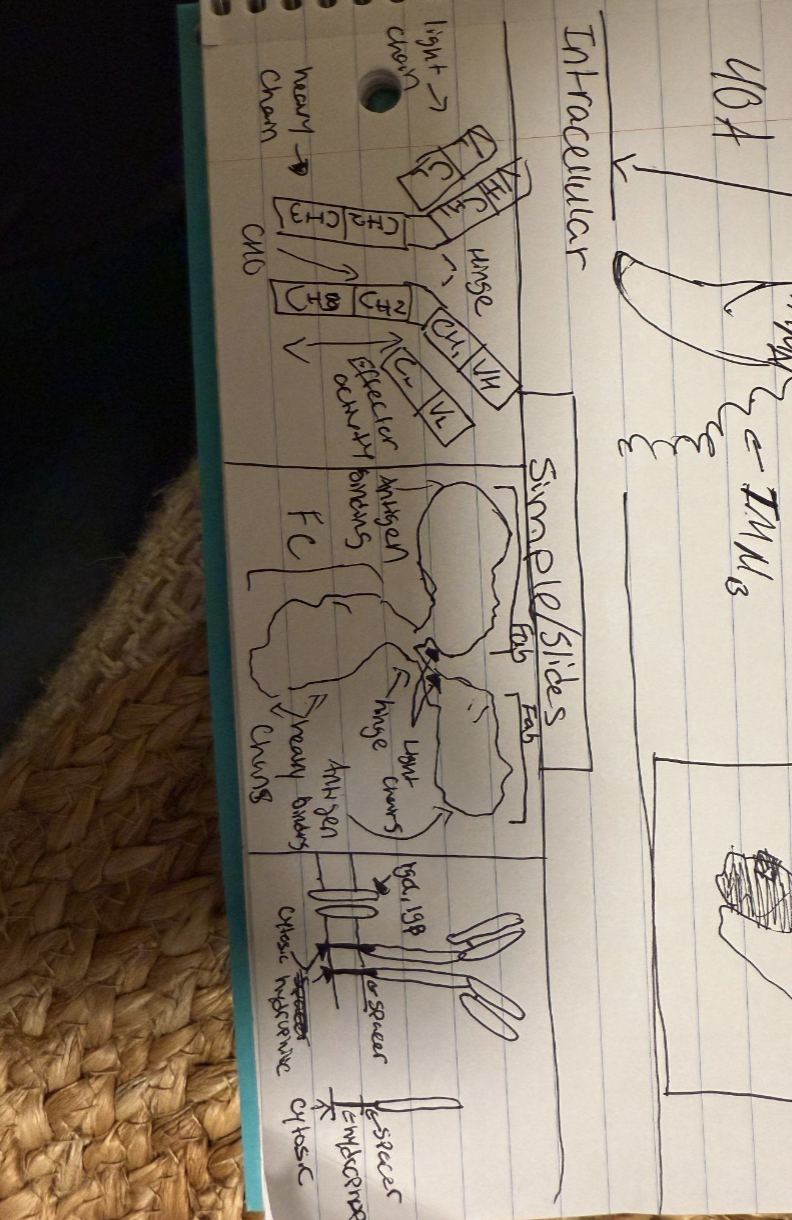 Intracellular
← IMM3
Simple/Slides
light →
chain
heavy →
chain
VL
CL
VH
CH2
CH3
Hinge
CH1
VH
CL
VL
CH2
CH3
CHO
Effector
activity
Fab
Fab
Antigen
binding
FC
hinge
Light
chains
Antigen
binding
heavy
chains
Igα, Igβ
spacer
cytosic
spacer
hydrophilic
spacer
hydrophob
cytosic